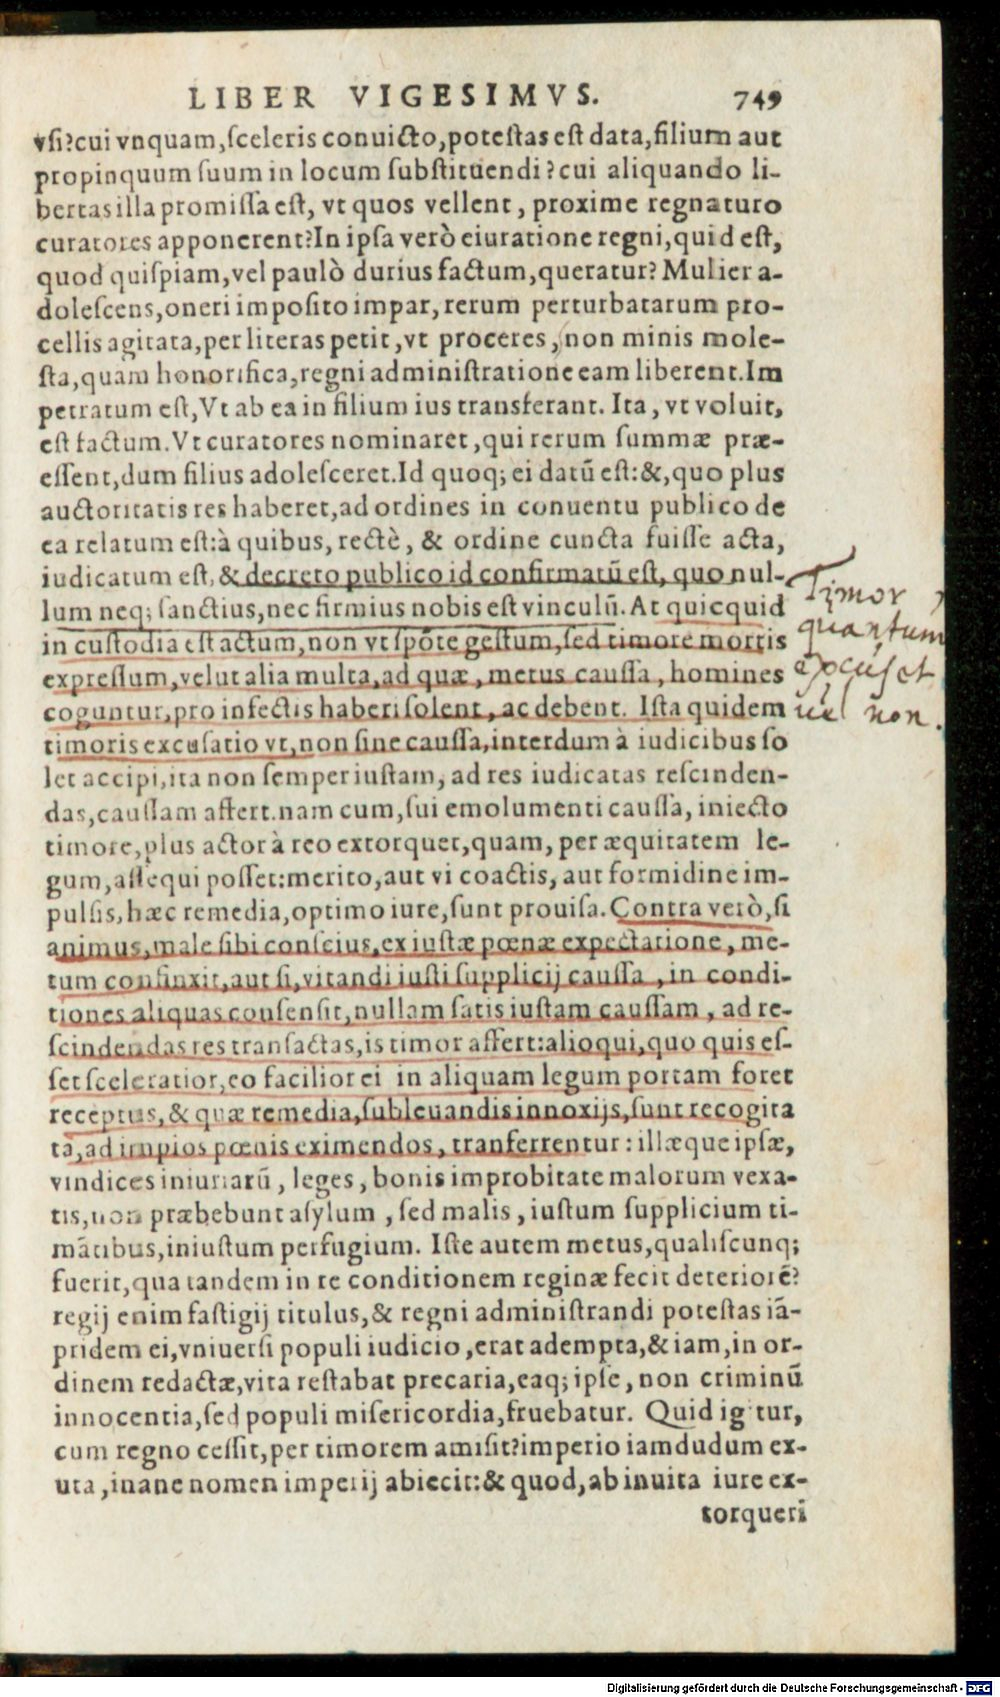 LIBER VIGESIMVS. 749
vsi?cui vnquam,sceleris conuicto,potestas est data,filium aut
propinquum suum in locum substituendi?cui aliquando li-
bertas illa promissa est, vt quos vellent, proxime regnaturo
curatores apponerent?In ipsa verò eiuratione regni,quid est,
quod quispiam,vel paulò durius factum,queratur? Mulier a-
dolescens,oneri imposito impar, rerum perturbatarum pro-
cellis agitata,per literas petit,vt proceres, non minis mole-
sta,quàm honorifica,regni administratione eam liberent.Im
petratum est,Vt ab ea in filium ius transferant. Ita, vt voluit,
est factum.Vt curatores nominaret,qui rerum summæ præ-
essent,dum filius adolesceret.Id quoq; ei datũ est:&,quo plus
auctoritatis res haberet,ad ordines in conuentu publico de
ea relatum est:à quibus, rectè, & ordine cuncta fuisse acta,
iudicatum est, & decreto publico id confirmatũ est, quo nul-
lum neq; sanctius,nec firmius nobis est vinculũ. At quicquid
in custodia est actum,non vt spõte gestum,sed timore mortis
expressum,velut alia multa,ad quæ, metus caussa, homines
coguntur,pro infectis haberi solent, ac debent. Ista quidem
timoris excusatio vt,non sine caussa,interdum à iudicibus so
let accipi,ita non semper iustam, ad res iudicatas rescinden-
das,caussam affert.nam cum,sui emolumenti caussa, iniecto
timore,plus actor à reo extorquet,quam, per æquitatem le-
gum,assequi posset:merito,aut vi coactis, aut formidine im-
pulsis,hæc remedia,optimo iure,sunt prouisa. Contra verò,si
animus,male sibi conscius,ex iustæ pœnæ expectatione, me-
tum confinxit,aut si,vitandi iusti supplicij caussa, in condi-
tiones aliquas consensit,nullam satis iustam caussam, ad re-
scindendas res transactas,is timor affert:alioqui,quo quis es-
set sceleratior,eo facilior ei in aliquam legum portam foret
receptus,& quæ remedia,subleuandis innoxijs,sunt recogita
ta,ad impios pœnis eximendos, tranferrentur: illæque ipsæ,
vindices iniuriarũ, leges, bonis improbitate malorum vexa-
tis,non præbebunt asylum, sed malis, iustum supplicium ti-
mãtibus,iniustum perfugium. Iste autem metus,qualiscunq;
fuerit,qua tandem in re conditionem reginæ fecit deteriorẽ?
regij enim fastigij titulus,& regni administrandi potestas iã-
pridem ei,vniuersi populi iudicio,erat adempta,& iam,in or-
dinem redactæ,vita restabat precaria,eaq; ipse, non criminũ
innocentia,sed populi misericordia,fruebatur. Quid igitur,
cum regno cessit,per timorem amisit?imperio iamdudum ex-
uta,inane nomen imperij abiecit:& quod,ab inuita iure ex-
torqueri
Timor
quantum
excuset
uel non.
Digitalisierung gefördert durch die Deutsche Forschungsgemeinschaft - DFG